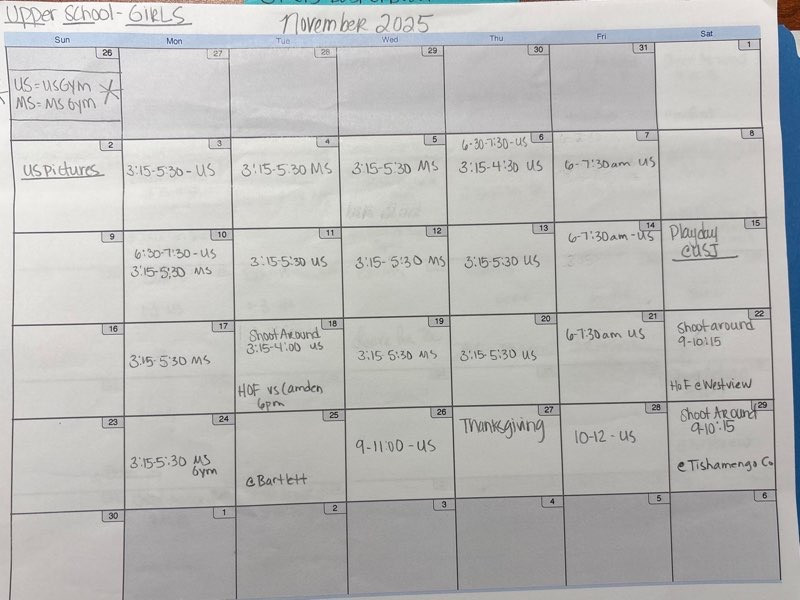 Upper School - GIRLS
November 2025
Sun Mon Tue Wed Thu Fri Sat
26 27 28 29 30 31 1
US = US Gym
MS = MS Gym
2 3 4 5 6 7 8
US Pictures
3:15-5:30 - US
3:15-5:30 MS
3:15-5:30 MS
6-30-7:30-US
3:15-4:30 US
6-7:30am US
9 10 11 12 13 14 15
6:30-7:30-US
3:15-5:30 MS
3:15-5:30 US
3:15-5:30 MS
3:15-5:30 US
6-7:30am-US
Playday
@USJ
16 17 18 19 20 21 22
3:15-5:30 MS
Shoot Around
3:15-4:00 US
HOF vs Camden
6pm
3:15-5:30 MS
3:15-5:30 US
6-7:30am US
Shoot around
9-10:15
HoF @ Westview
23 24 25 26 27 28 29
3:15-5:30 MS
Gym
@ Bartlett
9-11:00-US
Thanksgiving
10-12-US
Shoot Around
9-10:15
@ Tishamengo Co
30 1 2 3 4 5 6